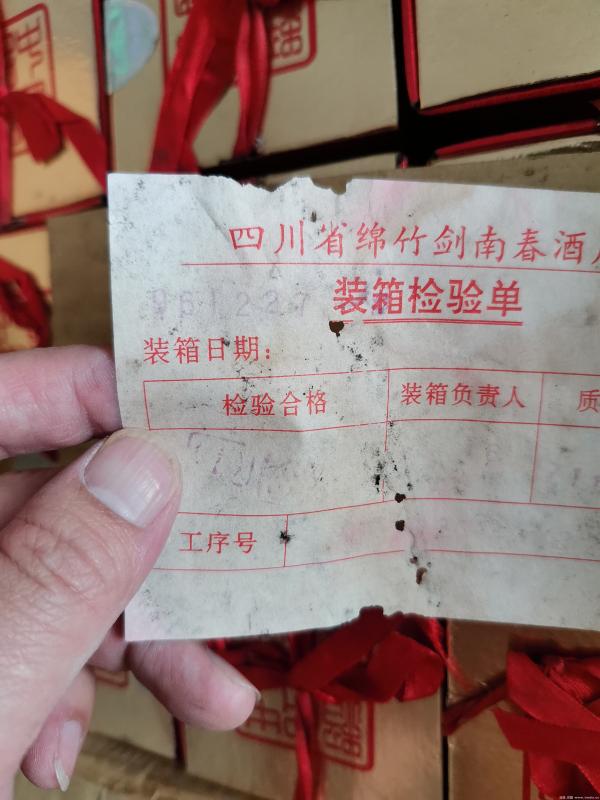 四川省绵竹剑南春酒
961227
装箱检验单
装箱日期：
检验合格
装箱负责人
质
工序号